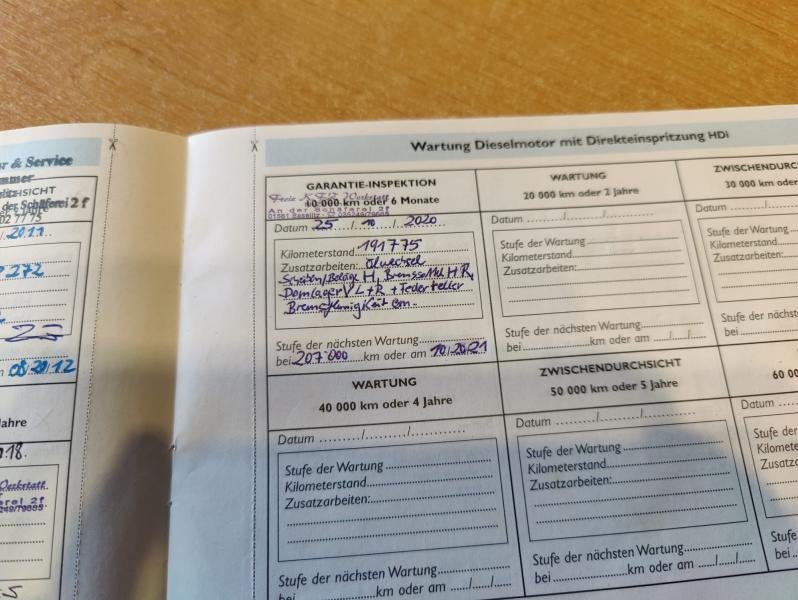 r & Service
mmer
CHSICHT
der Schäferei 2 f
02 77 75
2011
272
08 2012
Jahre
18.
Werkstatt
Wartung Dieselmotor mit Direkteinspritzung HDi
GARANTIE-INSPEKTION
Freie KFZ Werkstatt
10 000 km oder 6 Monate
An der Schäferei 2f
Datum 25 / 10 / 2020
Kilometerstand 191775
Zusatzarbeiten: Ölwechsel
Scheiben/Beläge H, Bremssattel HR,
Domlager VL+R + Federteller
Bremsflüssigkeit ern.
Stufe der nächsten Wartung
bei 207.000 km oder am 10.2021
WARTUNG
20 000 km oder 2 Jahre
Datum ....../....../............
Stufe der Wartung
Kilometerstand
Zusatzarbeiten:
Stufe der nächsten Wartung
bei ............ km oder am ...../...../.....
ZWISCHENDURC
30 000 km oder
Datum ....../
Stufe der Wartung
Kilometerstand
Zusatzarbeiten:
Stufe der nächst
bei
WARTUNG
40 000 km oder 4 Jahre
Datum ......../......../............
Stufe der Wartung
Kilometerstand
Zusatzarbeiten:
Stufe der nächsten Wartung
bei ............ km oder am ...../...../.....
ZWISCHENDURCHSICHT
50 000 km oder 5 Jahre
Datum ......../......../............
Stufe der Wartung
Kilometerstand
Zusatzarbeiten:
Stufe der nächsten Wartung
bei ............ km oder am ...../...../.....
60 00
Datum
Stufe der
Kilomete
Zusatza
Stufe
bei